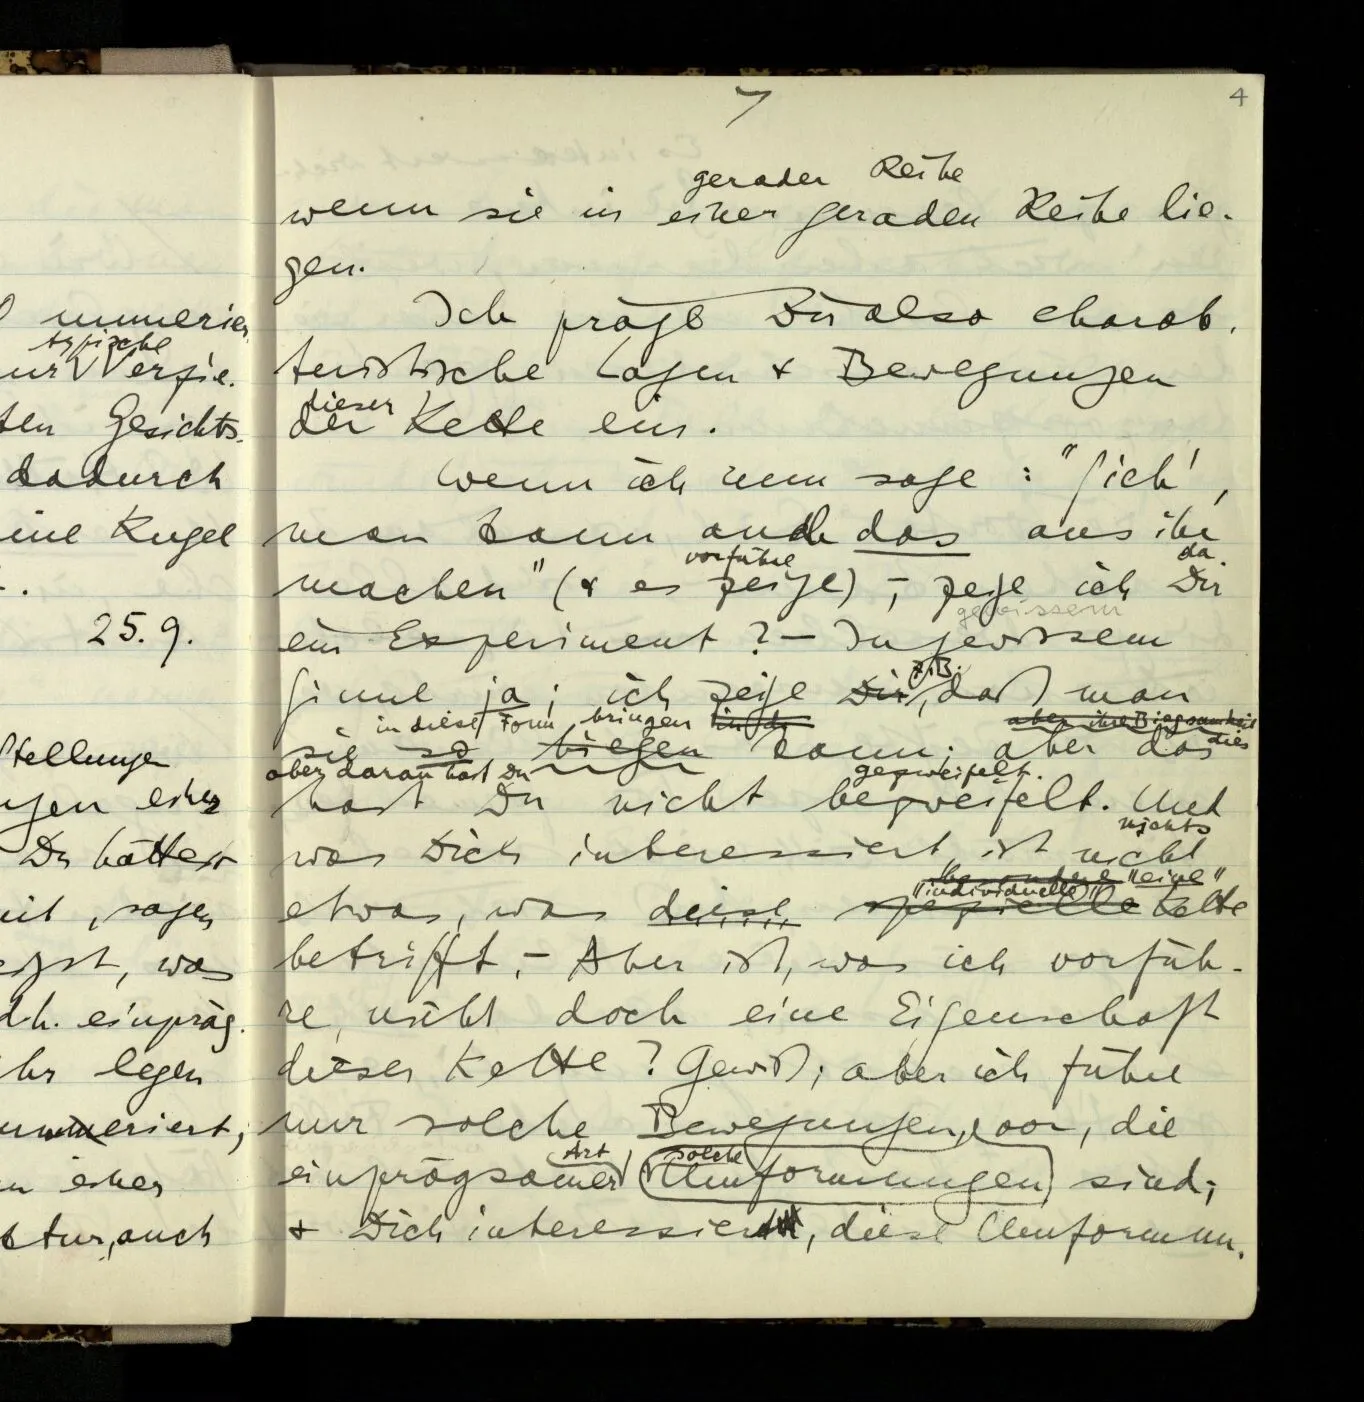 7
4
gerader Reihe
wenn sie in einer geraden Reihe lie-
gen.
Ich präge Dir also charak-
teristische Lagen & Bewegungen
dieser
der Kette ein.
Wenn ich nun sage: "Sieh',
man kann auch das aus ihr
vorführe da
machen" (& es zeige) –, zeige ich Dir
gewissem
ein Experiment? – In gewissem
z.B.
Sinne ja; ich zeige Dir, daß man
in diese Form bringen aber ihre Biegsamkeit
sie so biegen kann; aber das
dies
aber daran hast Du gezweifelt.
hast Du nicht bezweifelt. Und
nichts
was Dich interessiert, ist nicht
besondere "eine"
"individuelle"
etwas, was diese spezielle Kette
betrifft. – Aber ist, was ich vorfüh-
re, nicht doch eine Eigenschaft
dieser Kette? Gewiß; aber ich führe
nur solche Bewegungen, vor, die
Art solche
einprägsamer Umformungen sind;
& Dich interessiert, diese Umformun-
numerier
typische
nur Verzie-
ten Gesichts-
dadurch
eine Kugel
25.9.
Stellungen
einer
Du hättest
, sagen
, was
d.h. einpräg-
legen
einer
auch